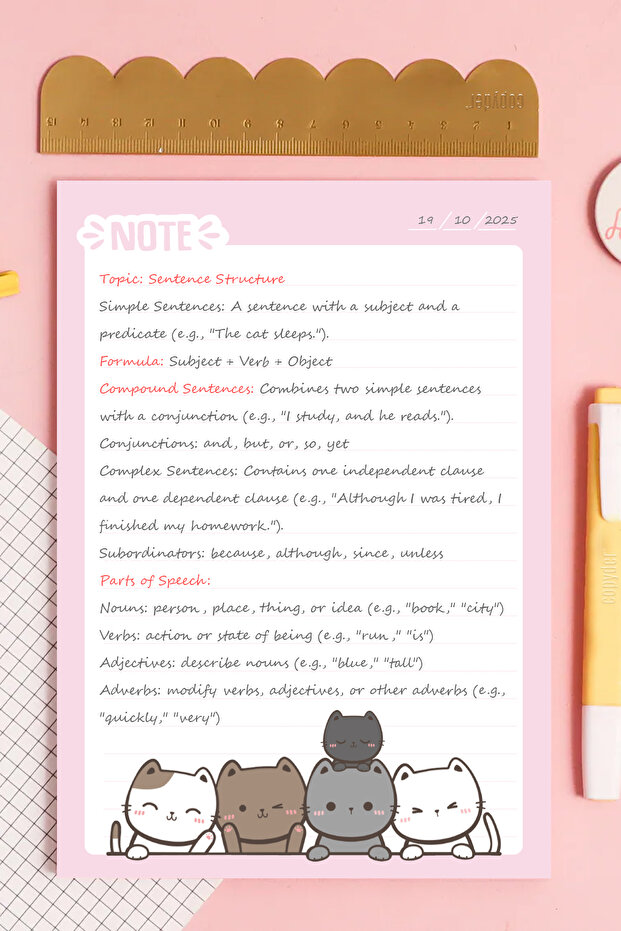 copyder
15 14 13 12 11 10 9 8 7 6 5 4 3 2 1
19 / 10 / 2025
NOTE
Topic: Sentence Structure
Simple Sentences: A sentence with a subject and a
predicate (e.g., "The cat sleeps.").
Formula: Subject + Verb + Object
Compound Sentences: Combines two simple sentences
with a conjunction (e.g., "I study, and he reads.").
Conjunctions: and, but, or, so, yet
Complex Sentences: Contains one independent clause
and one dependent clause (e.g., "Although I was tired, I
finished my homework.").
Subordinators: because, although, since, unless
Parts of Speech:
Nouns: person, place, thing, or idea (e.g., "book," "city")
Verbs: action or state of being (e.g., "run," "is")
Adjectives: describe nouns (e.g., "blue," "tall")
Adverbs: modify verbs, adjectives, or other adverbs (e.g.,
"quickly," "very")
copyder